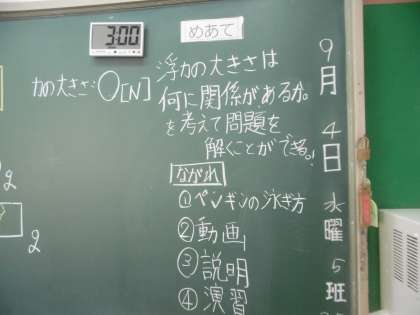 3:00
めあて
浮力の大きさは
何に関係があるか。
を考えて問題を
解くことができる。!
力の大きさ:○[N]
ながれ
①ペンギンの泳ぎ方
②動画
③説明
④演習
9月4日水曜5班
g
g